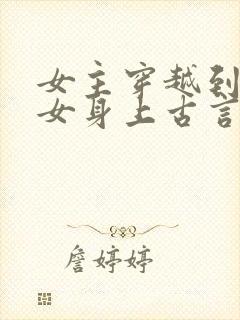 女主穿越到
女身上古言
詹婷婷